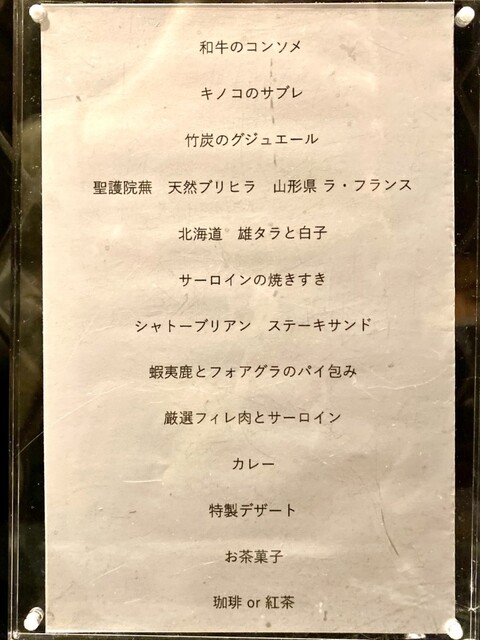 和牛のコンソメ
キノコのサブレ
竹炭のグジュエール
聖護院蕪　天然ブリヒラ　山形県 ラ・フランス
北海道　雄タラと白子
サーロインの焼きすき
シャトーブリアン　ステーキサンド
蝦夷鹿とフォアグラのパイ包み
厳選フィレ肉とサーロイン
カレー
特製デザート
お茶菓子
珈琲 or 紅茶